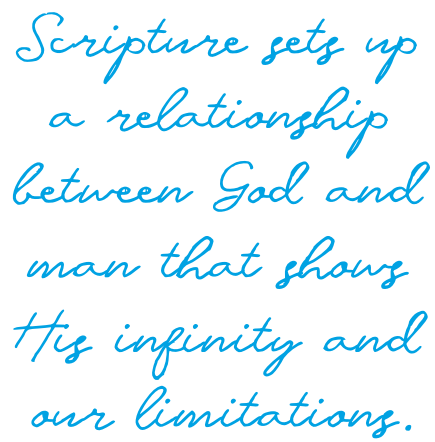 Scripture sets up
a relationship
between God and
man that shows
His infinity and
our limitations.